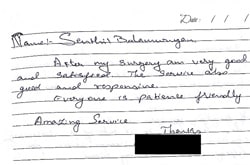 Date: / /
Name:- Senthil Balamurugan
After my Surgery am very good
and satisfied. The Service also
good and responsive.
Everyone is patience friendly
Amazing Service
Thanks